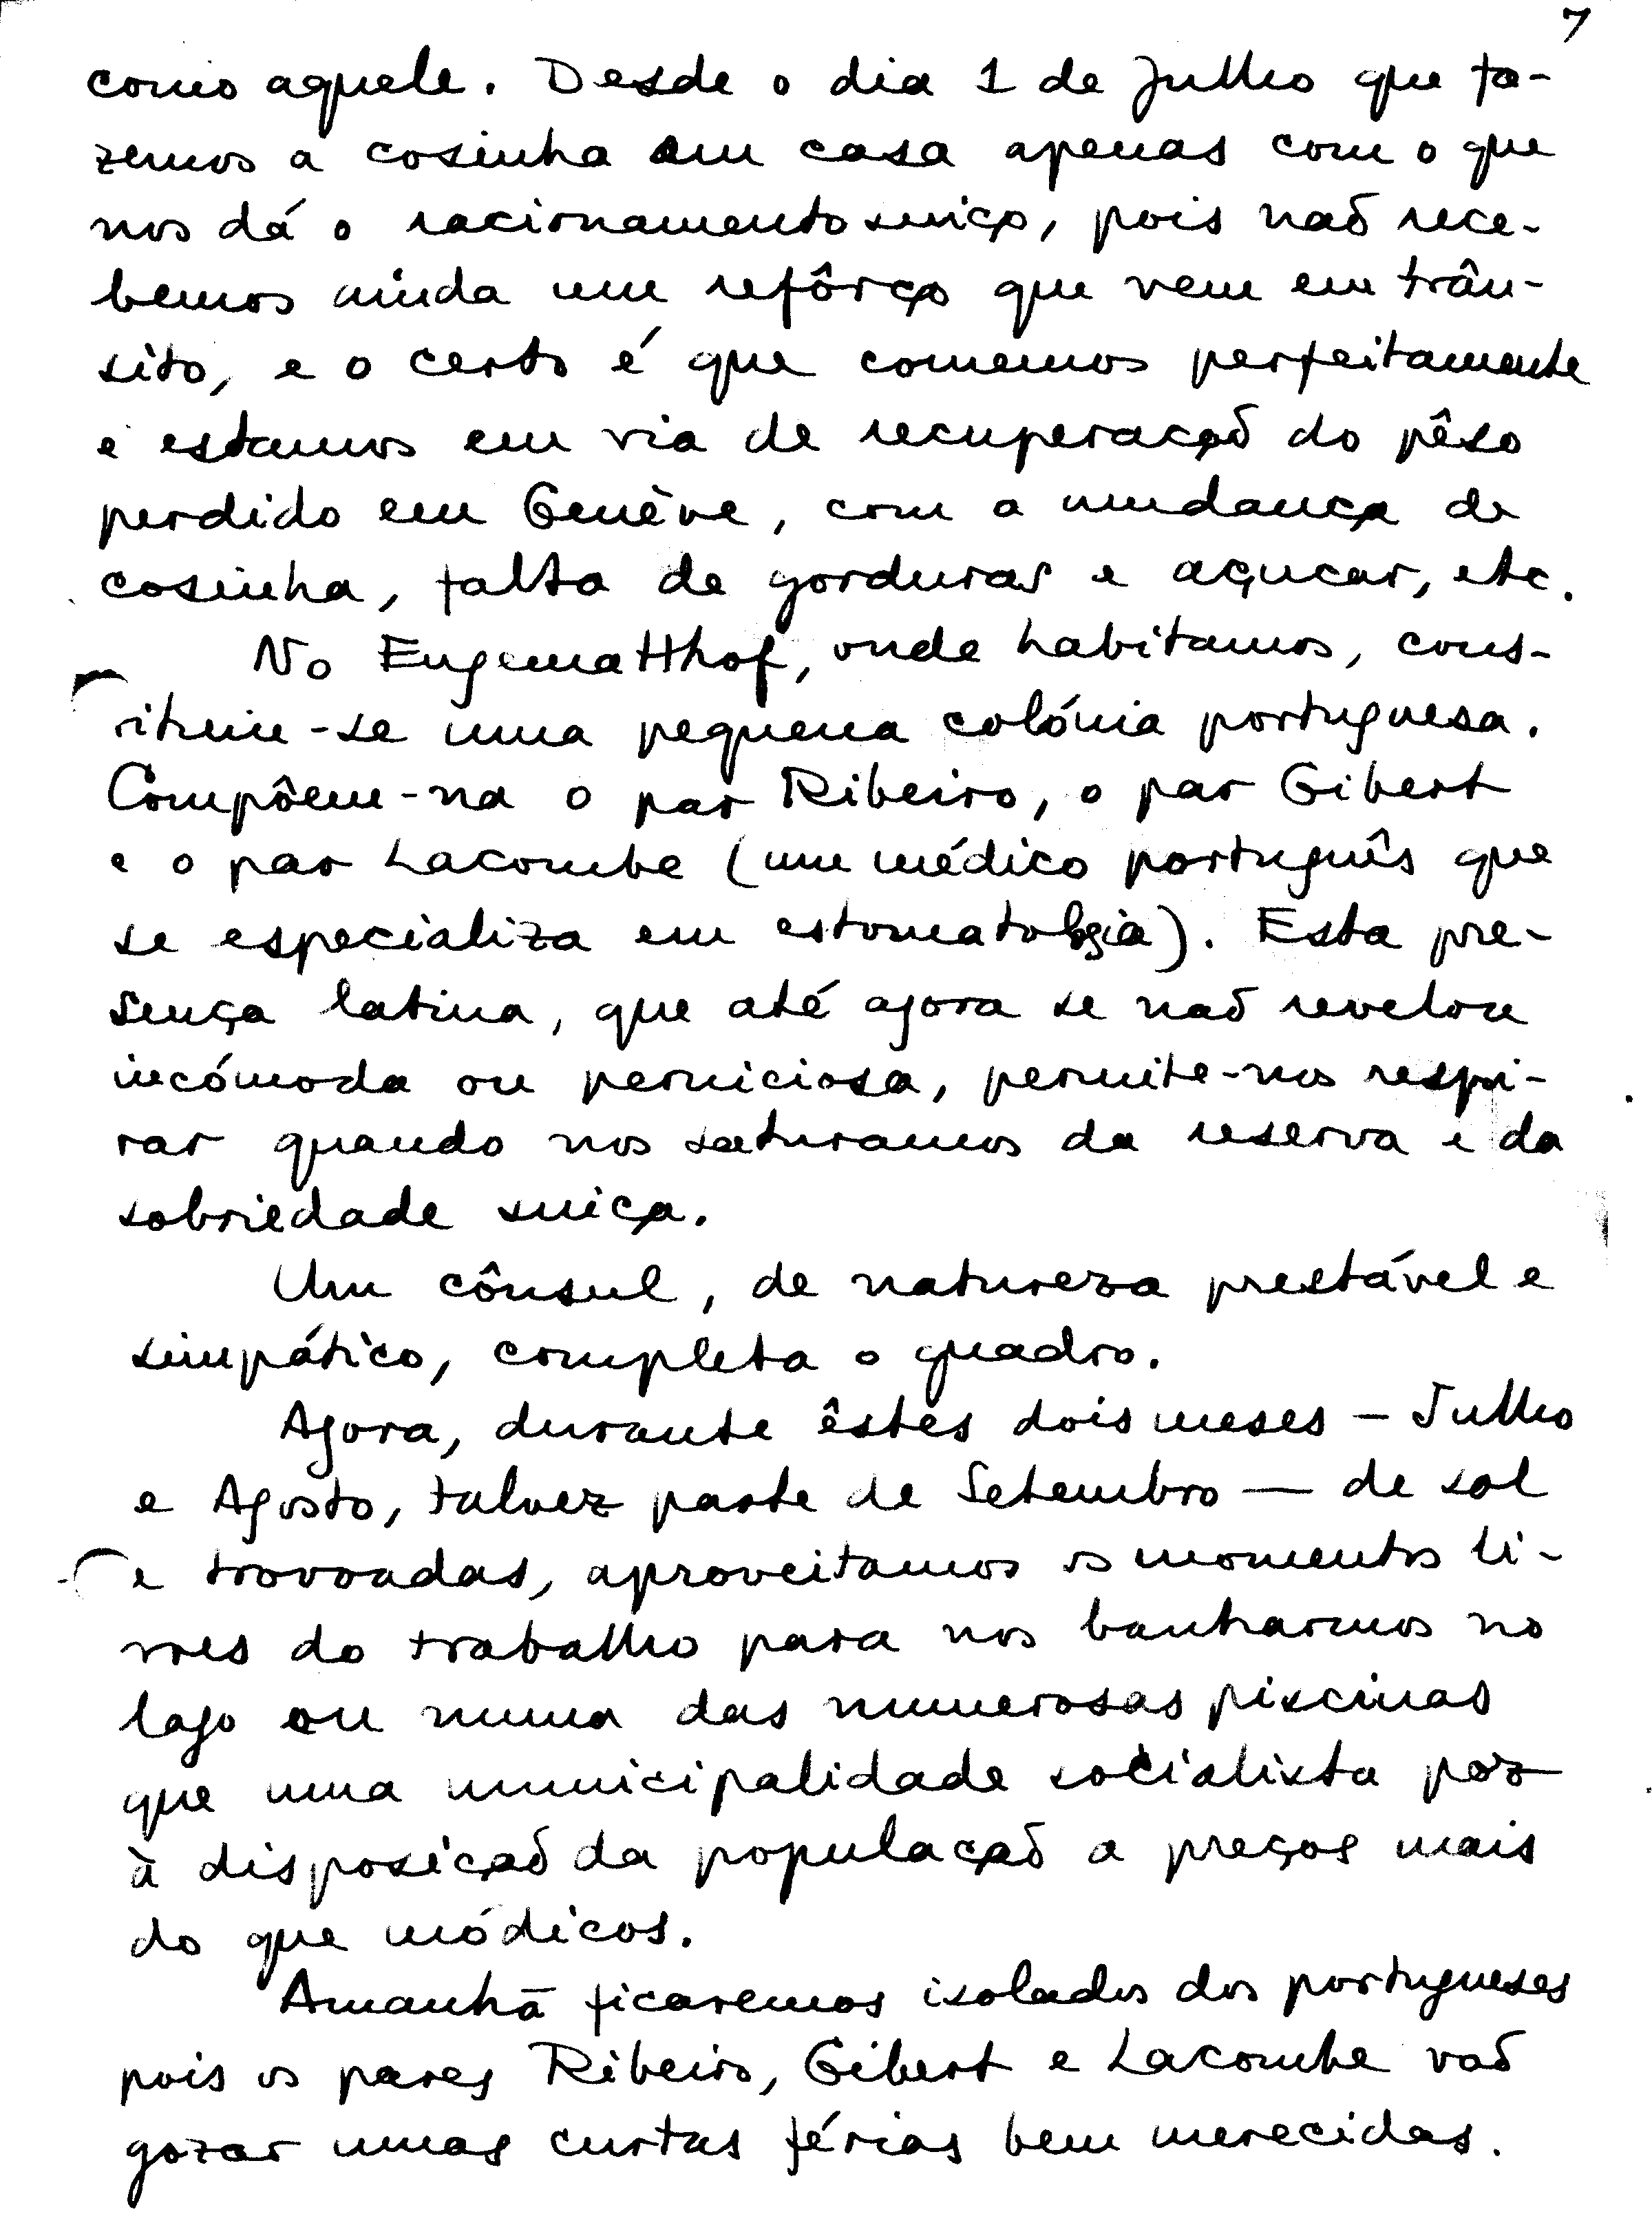 7
como aquele. Desde o dia 1 de Julho que fa-
zemos a cosinha em casa apenas com o que
nos dá o racionamento suiço, pois naõ rece-
bemos ainda um refôrço que vem em trân-
sito, e o certo é que comemos perfeitamente
e estamos em via de recuperaçaõ do pêso
perdido em Genève, com a mudança de
cosinha, falta de gorduras e açucar, etc.
No Engematthof, onde habitamos, cons-
tituiu-se uma pequena colónia portuguesa.
Compôem-na o par Ribeiro, o par Gibert
e o par Lacombe (um médico português que
se especializa em estomatologia). Esta pre-
sença latina, que até agora se naõ revelou
incómoda ou perniciosa, permite-nos respi-
rar quando nos saturamos da reserva e da
sobriedade suiça.
Um cônsul, de natureza prestável e
simpático, completa o quadro.
Agora, durante êstes dois meses – Julho
e Agosto, talvez parte de Setembro — de sol
e trovoadas, aproveitamos os momentos li-
vres do trabalho para nos banharmos no
lago ou numa das numerosas piscinas
que uma municipalidade socialista poz
à disposiçaõ da populaçaõ a preços mais
do que módicos.
Amanhã ficaremos isolados dos portugueses
pois os pares Ribeiro, Gibert e Lacombe vaõ
gozar umas curtas férias bem merecidas.